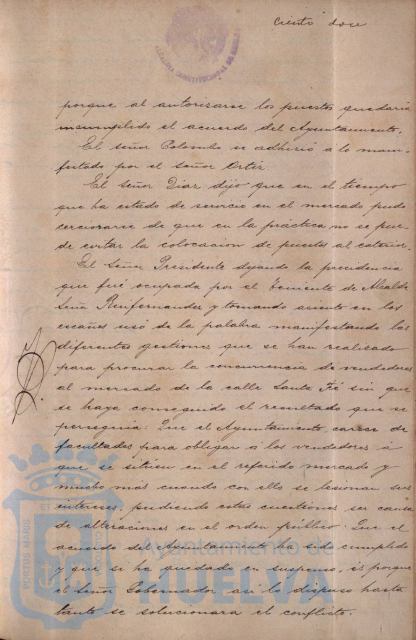 Ciento doce
porque al autorizarse los puestos quedaria
incumplido el acuerdo del Ayuntamiento.
El señor Colombo se adhirió a lo mani-
festado por el señor Ortiz.
El señor Diaz dijo que en el tiempo
que ha estado de servicio en el mercado pudo
cerciorarse de que en la práctica no se pue-
de evitar la colocacion de puestos al exterior.
El Señor Presidente dejando la presidencia
que fué ocupada por el Teniente de Alcalde
Señor y tomando asiento en los
escaños usó de la palabra manifestando las
diferentes gestiones que se han realizado
para procurar la concurrencia de vendedores
al mercado de la calle Santa Fé sin que
se haya conseguido el resultado que se
perseguia: Que el Ayuntamiento carece de
facultades para obligar a los vendedores á
que se sitúen en el referido mercado y
mucho mas cuando con ello se lesionan sus
intereses, pudiendo estas cuestiones ser causa
de alteraciones en el orden público: Que el
acuerdo del Ayuntamiento ha sido cumplido
y que si ha quedado en suspenso, es porque
el Señor Gobernador asi lo dispuso hasta
tanto se solucionara el conflicto.
Ayuntamiento de
HUELVA
PORTUS MARIS